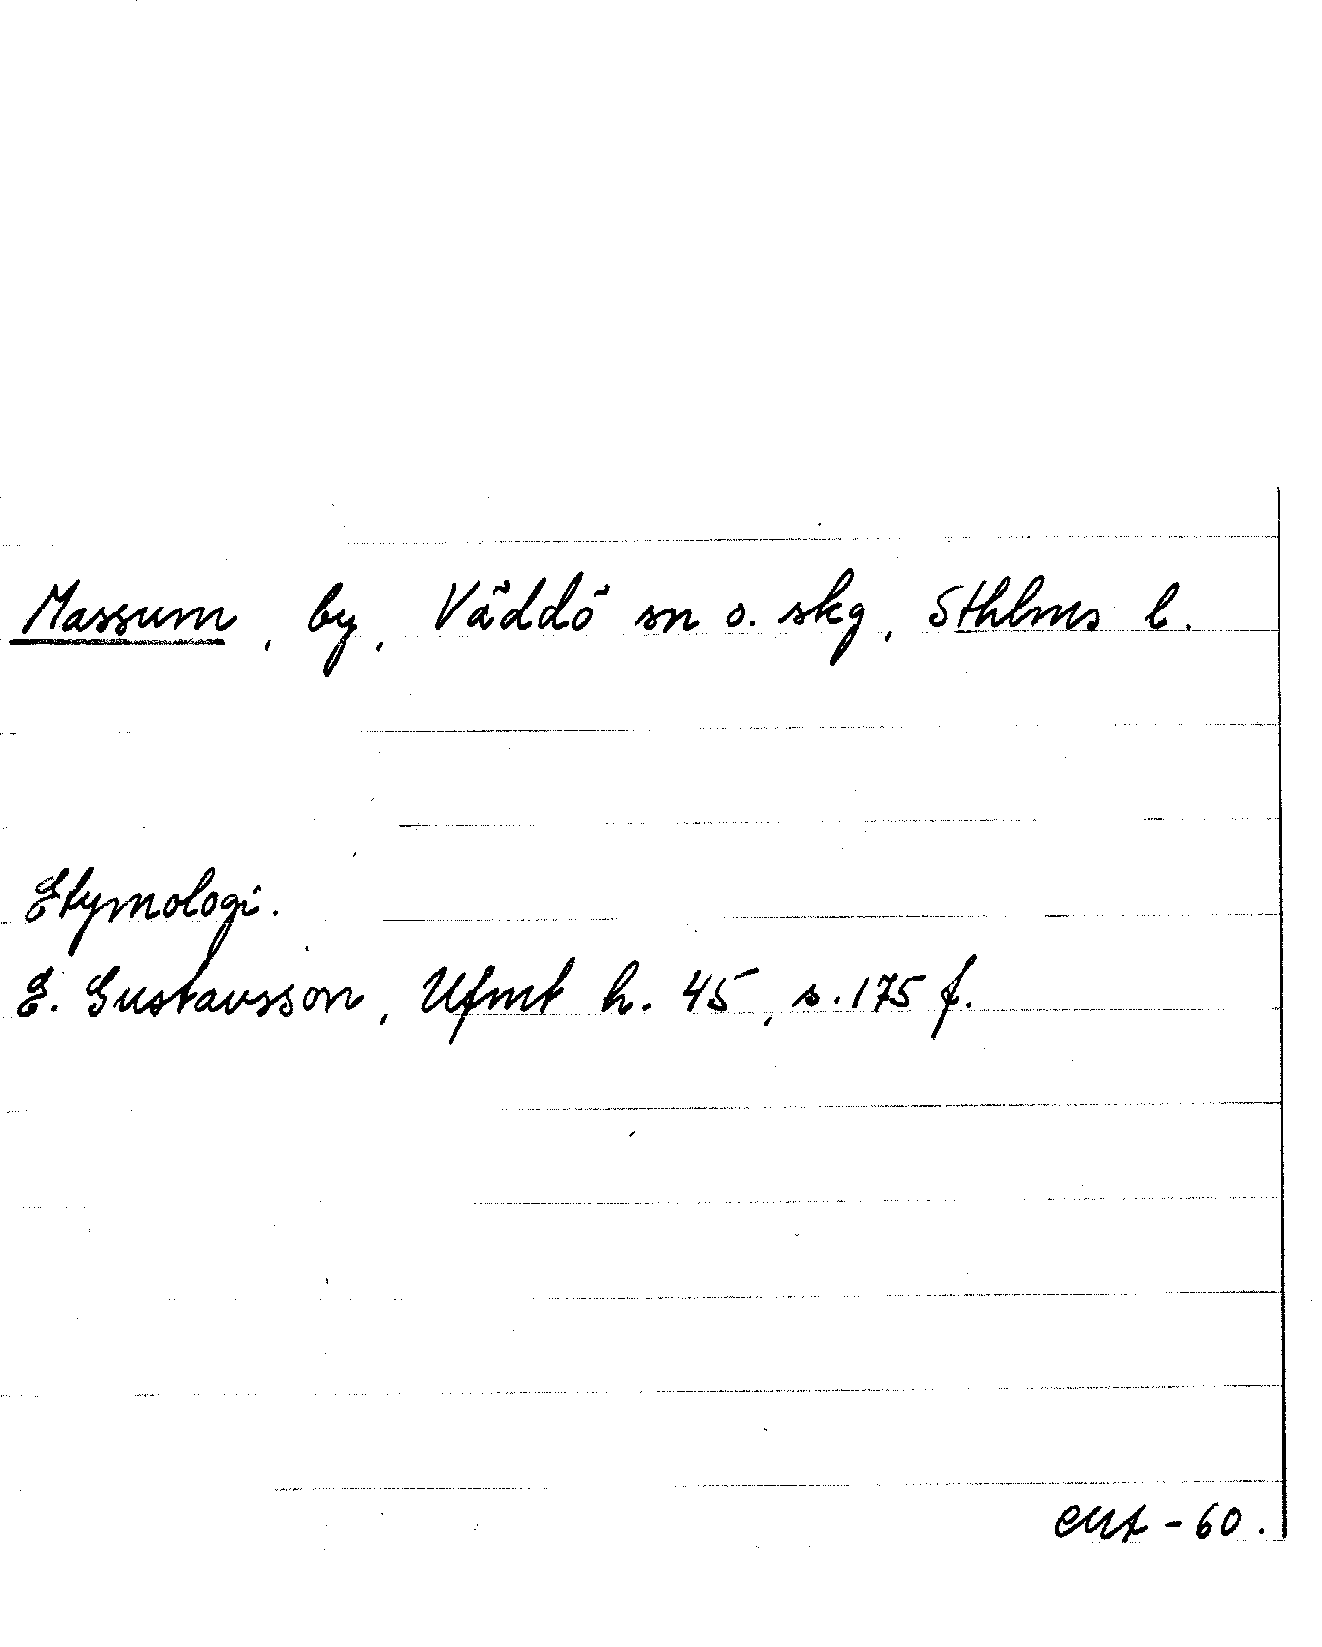 Massum, by, Väddö sn o. skg, Sthlms l.
Etymologi.
E. Gustavsson, Ufmt h. 45, s. 175 f.
-60.